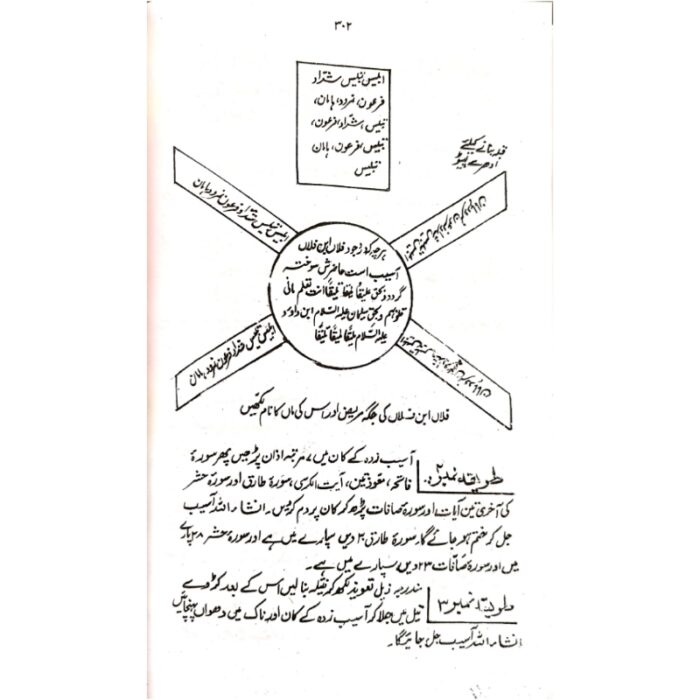 ۳۰۲
ابلیس تبلیس شداد
فرعون، نمرود، ہامان،
تبلیس، شداد، فرعون،
تبلیس، فرعون، ہامان
تبلیس
فتیلہ بنانے کیلئے
ادھر سے لپیٹو
ابلیس تبلیس شداد فرعون نمرود ہامان
ہر چہ کہ در وجود فلاں ابن فلاں
آسیب است حاضرش سوختہ
گردد و بحق علیقا
و بحق سلیمان علیہ السلام ابن داؤد
علیہ السلام
ابلیس تبلیس شداد فرعون نمرود ہامان
فلاں ابن فلاں کی جگہ مریض اور اس کی ماں کا نام لکھیں
طریقہ نمبر ۲: آسیب زدہ کے کان میں ۷ مرتبہ اذان پڑھیں پھر سورۃ
فاتحہ، معوذتین، آیت الکرسی، سورۃ طارق اور سورۃ حشر
کی آخری تین آیات اور سورۃ صافات پڑھ کر کان پر دم کر دیں۔ انشاء اللہ آسیب
جل کر ختم ہو جائے گا۔ سورۃ طارق ۳۰ ویں سپارے میں ہے اور سورۃ حشر ۲۸ پارے
میں اور سورۃ صافات ۲۳ ویں سپارے میں ہے۔
طریقہ نمبر ۳ مندرجہ ذیل تعویذ لکھ کر فتیلہ بنا لیں اس کے بعد کڑوے
تیل میں جلا کر آسیب زدہ کے کان اور ناک میں دھواں پہنچائیں
انشاء اللہ آسیب جل جائیگا۔